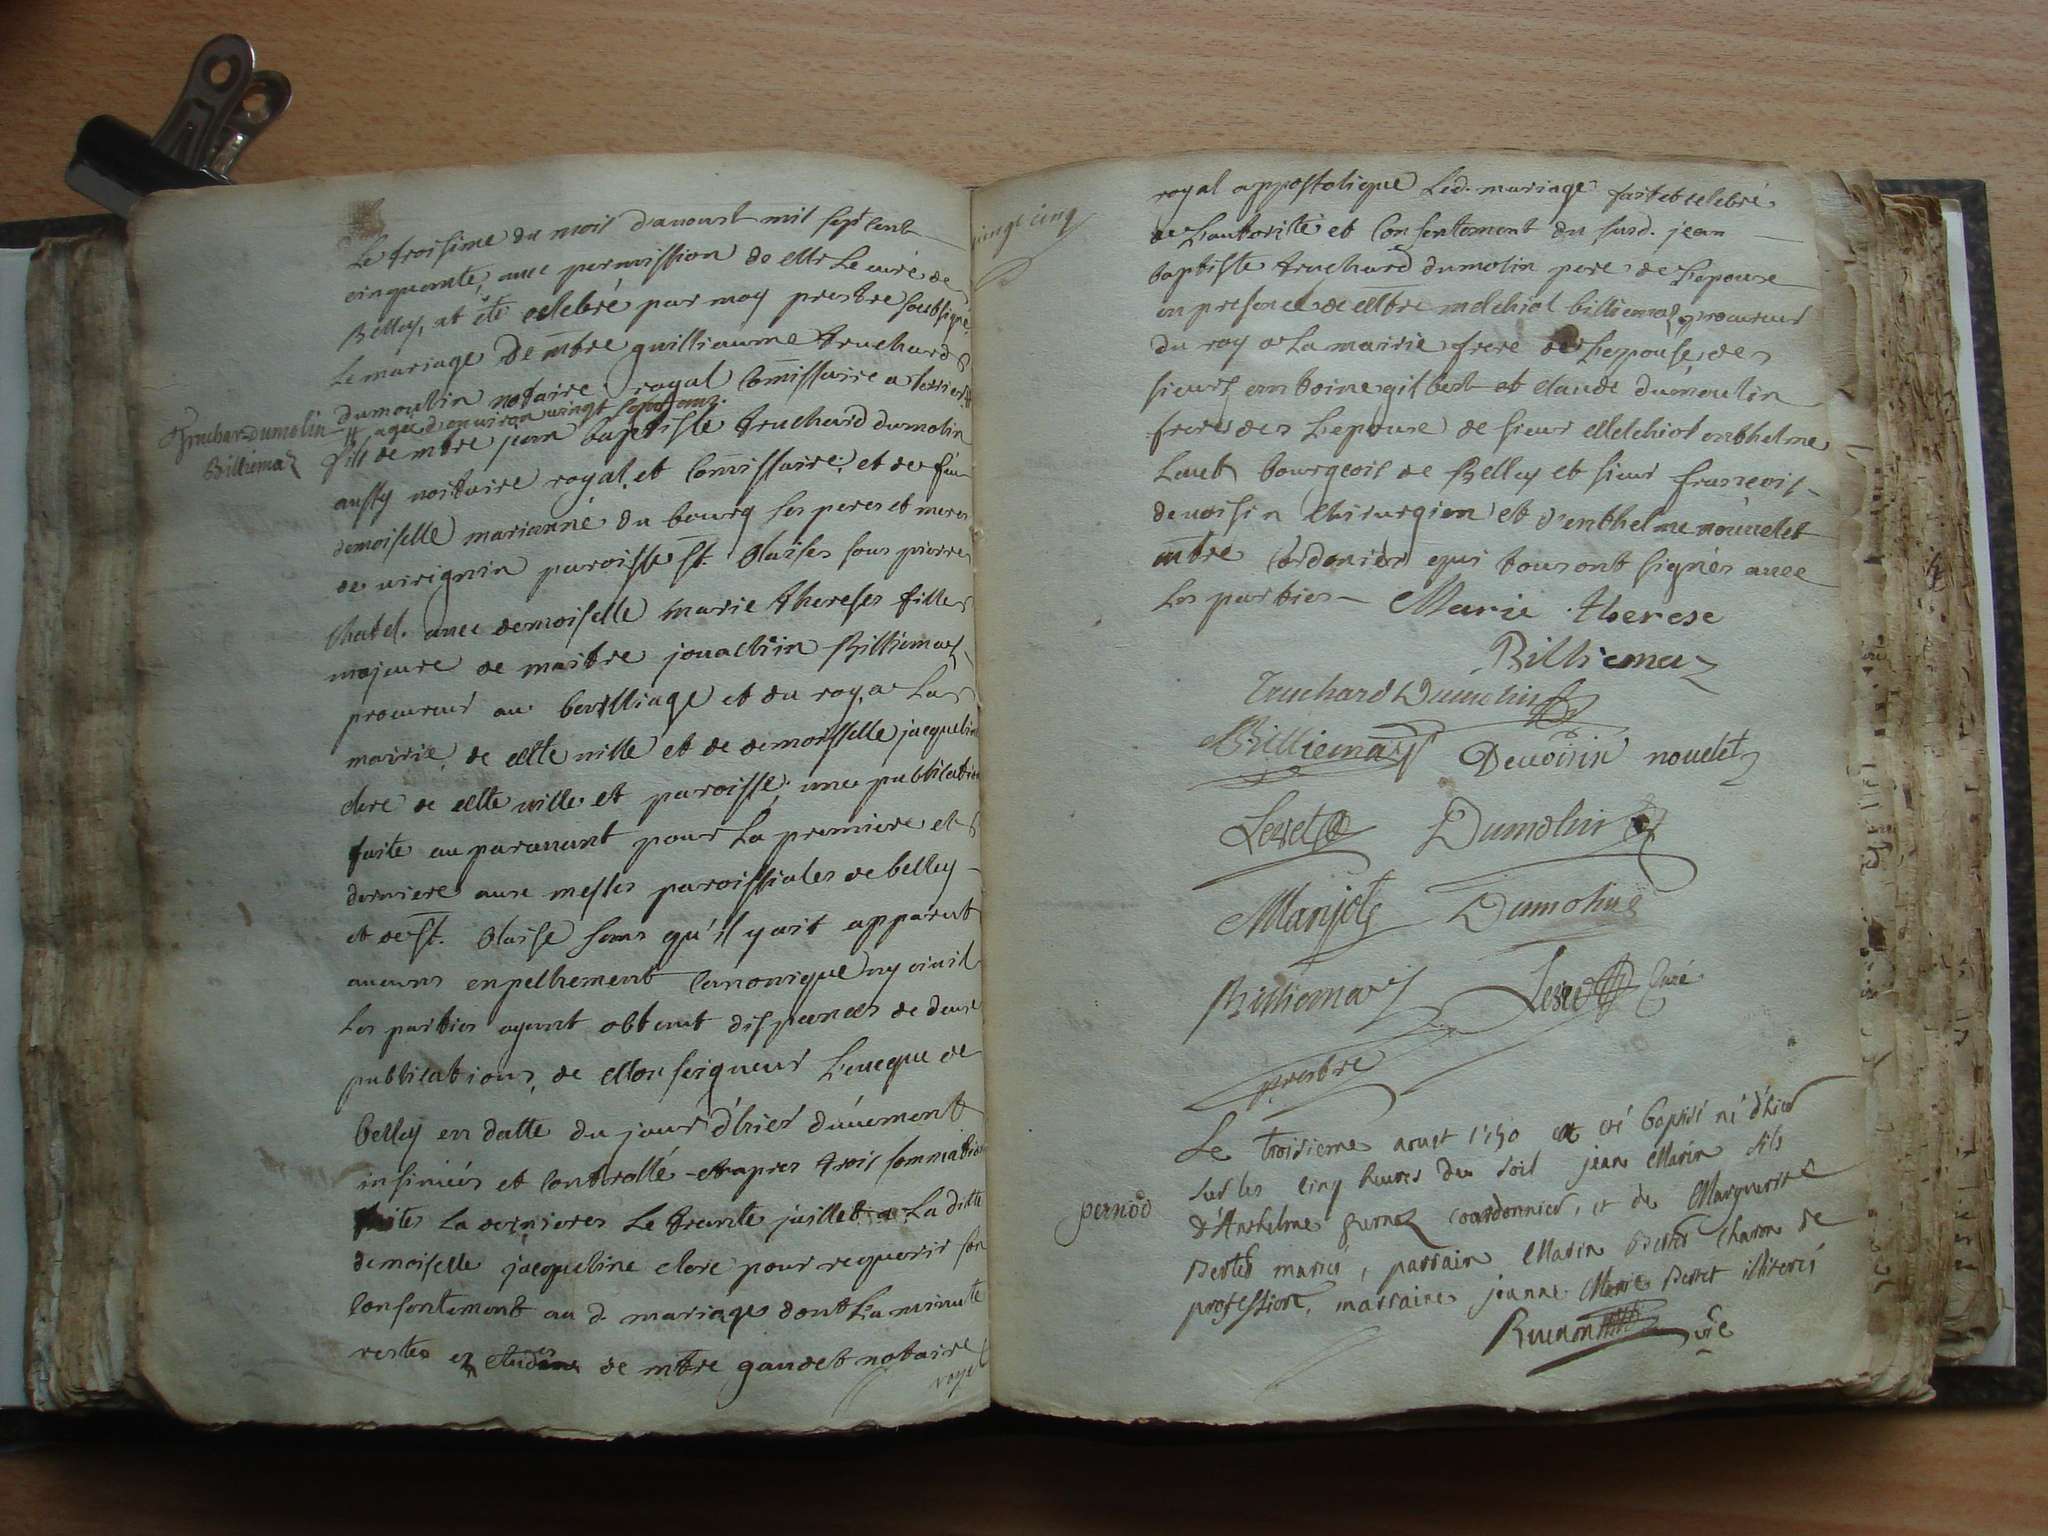 Le troisime du mois d'aoust mil sept cent
cinquante, avec permission de Mr Le curé de
Belley, at été celebré par moy prestre soubsigné
Le mariage de mtre guilliaume truchard
dumoulin notaire royal Commissaire a terrier #
# agé d'environ vingt sept ans.
Truchar Dumolin
Billiemaz
fils de mtre jean baptiste truchard dumolin
aussy nottaire royal, et Commissaire, et de feu
demoiselle marianne du bourg ses peres et meres
de virignin paroisse St. Blaise sous pierre
Chatel. avec demoiselle marie therese fille
majeure de maitre jouachin Billiemaz
procureur au bailliage et du roy a La
mairie de cette ville et de demoiselle jacqueline
clerc de cette ville et paroisse, une publication
faite auparavant pour La premiere et
derniere aux messes paroissiales de belley
et de St. Blaise sans qu'il y ait apparut
aucuns enpelhement Canonique ny civil
Les parties ayant obtenut dispances de deux
publications, de Monseigneur L'eveque de
belley en datte du jour d'hier duement
insinuées et Controllé et apres trois sommations
faites La derniere Le trente juillet a La ditte
demoiselle jacqueline clerc pour requerir son
Consentement au d. mariage dont La minute
restes ez etudes de mtre gaudet notaire
royal
vingt cinq
royal appostolique Led. mariage fait et celebré
de L'autorité et Consentement du susd. jean
baptiste truchard dumolin pere de L'epoux
en presence de Mtre melchiol billiemaz procureur
du roy a La mairie frere de L'epouse, des
sieurs antoine gilbert et claude dumoulin
freres de L'epoux de sieur Melchiol anthelme
Levet bourgeois de Belley et sieur françois
devoisin Chirurgien et d'anthelme nouvelet
mtre Cordonier qui tous ont signés avec
Les parties Marie Therese
Billiemaz
Truchard Dumolin
Billiemaz Devoisin novelet
Levet Dumolin
Marijot Dumolin
Billiemaz Levet Curé
prestre
Le troisieme aoust 1750 at eté baptisé né d'hier
sur les cinq heures du soir jean Marin fils
pernod
d'Anthelme pernoz coardonnier, et de Marguerite
Bertet mariés, parrain Marin Bertet Charon de
profession, marraine jeanne Marie Bertet illiterés
vre